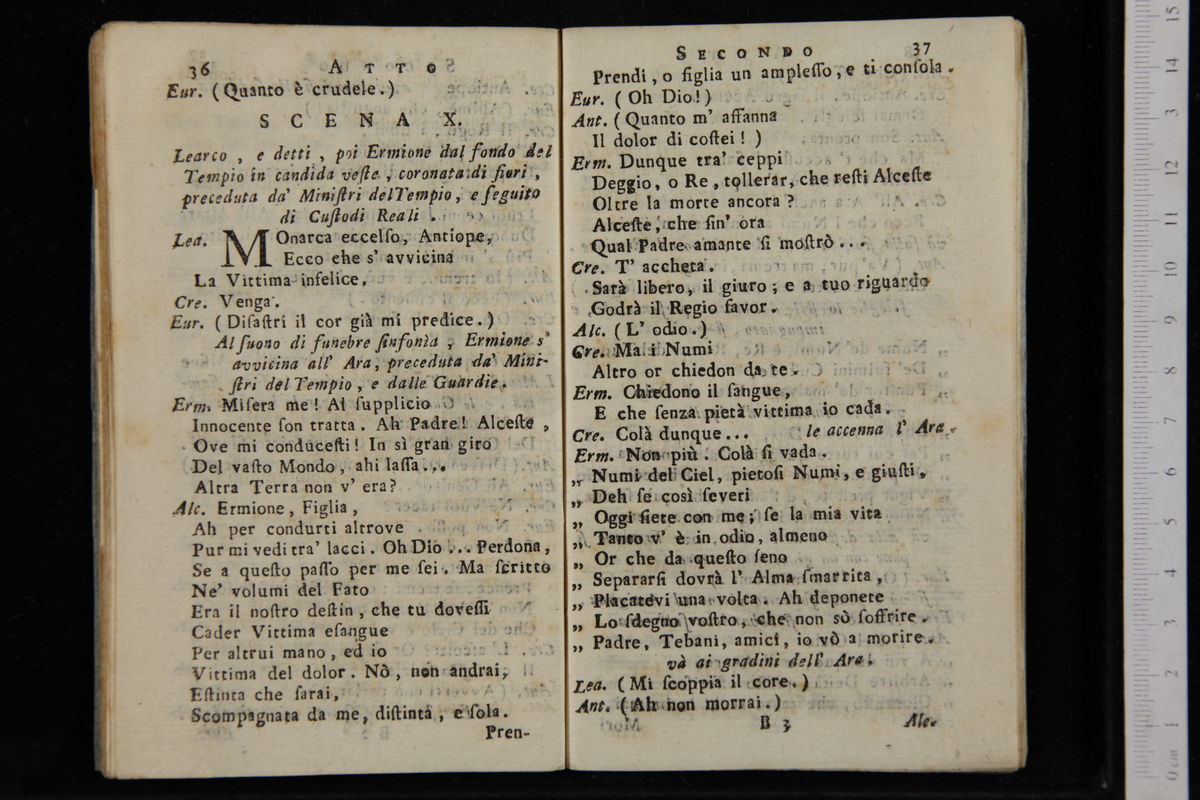 36 ATTO
Eur. (Quanto è crudele.)
SCENA X.
Learco, e detti, poi Ermione dal fondo del
Tempio in candida veſte, coronata di fiori,
preceduta da' Miniſtri del Tempio, e ſeguito
di Cuſtodi Reali.
Lea. MOnarca eccelſo, Antiope,
Ecco che s' avvicina
La Vittima infelice,
Cre. Venga.
Eur. (Diſaſtri il cor già mi predice.)
Al ſuono di funebre ſinfonìa, Ermione s'
avvicina all' Ara, preceduta da' Mini-
ſtri del Tempio, e dalle Guardie.
Erm. Miſera me! Al ſupplicio
Innocente ſon tratta. Ah Padre! Alceſte,
Ove mi conduceſti! In sì gran giro
Del vaſto Mondo, ahi laſſa...
Altra Terra non v' era?
Alc. Ermione, Figlia,
Ah per condurti altrove
Pur mi vedi tra' lacci. Oh Dio... Perdona,
Se a queſto paſſo per me ſei. Ma ſcritto
Ne' volumi del Fato
Era il noſtro deſtin, che tu doveſſi
Cader Vittima eſangue
Per altrui mano, ed io
Vittima del dolor. Nò, non andrai,
Eſtinta che ſarai,
Scompagnata da me, diſtinta, e ſola.
Pren-
SECONDO 37
Prendi, o figlia un ampleſſo, e ti conſola.
Eur. (Oh Dio!)
Ant. (Quanto m' affanna
Il dolor di coſtei!)
Erm. Dunque tra' ceppi
Deggio, o Re, tollerar, che reſti Alceſte
Oltre la morte ancora?
Alceſte, che ſin' ora
Qual Padre amante ſi moſtrò...
Cre. T' accheta.
Sarà libero, il giuro; e a tuo riguardo
Godrà il Regio favor.
Alc. (L' odio.)
Cre. Ma i Numi
Altro or chiedon da te.
Erm. Chiedono il ſangue,
E che ſenza pietà vittima io cada.
Cre. Colà dunque... le accenna l' Ara.
Erm. Non più. Colà ſi vada.
„ Numi del Ciel, pietoſi Numi, e giuſti,
„ Deh ſe così ſeveri
„ Oggi ſiete con me; ſe la mia vita
„ Tanto v' è in odio, almeno
„ Or che da queſto ſeno
„ Separarſi dovrà l' Alma ſmarrita,
„ Placatevi una volta. Ah deponete
„ Lo ſdegno voſtro, che non sò ſoffrire.
„ Padre, Tebani, amici, io vò a morire.
và ai gradini dell' Ara.
Lea. (Mi ſcoppia il core.)
Ant. (Ah non morrai.)
B 3 Alc.
0 cm 1 2 3 4 5 6 7 8 9 10 11 12 13 14 15